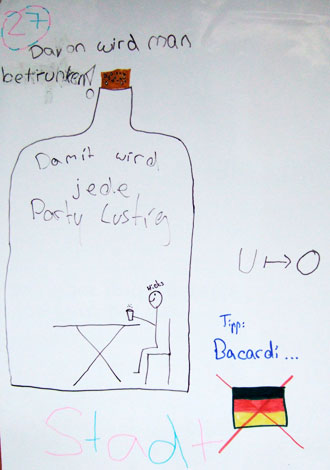 27
Davon wird man
betrunken!
Damit wird
jede
Party Lustig
U ↦ O
Tipp:
Bacardi...
Stadt